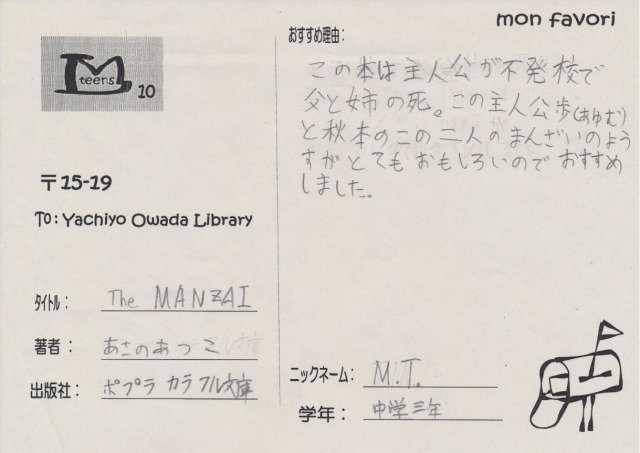 mon favori
M
teens
10
〒15-19
To: Yachiyo Owada Library
タイトル: The MANZAI
著者: あさのあつこ
出版社: ポプラ カラフル文庫
おすすめ理由:
この本は主人公が不発校で
父と姉の死。この主人公歩(あゆむ)
と秋本のこの二人のまんざいのよう
すがとてもおもしろいのでおすすめ
しました。
ニックネーム: M.T.
学年: 中学三年